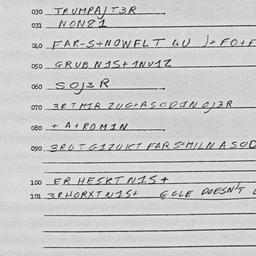 030 TRUMPAJT3R
031 NONZ1
040 FAR-S+NOWFLT 4U )+FO+F
050 GRUB N1S+ 1NV1Z
060 SOJ3R
070 3RTM1R ZUG+ASOD1N OJ3R
080 +A+ROM1N
090 3ROTG1ZUKT FARSMILNASOD
100 ER HESKT N1S+
101 3RHORXT N1S+ GCLE DOESN'T